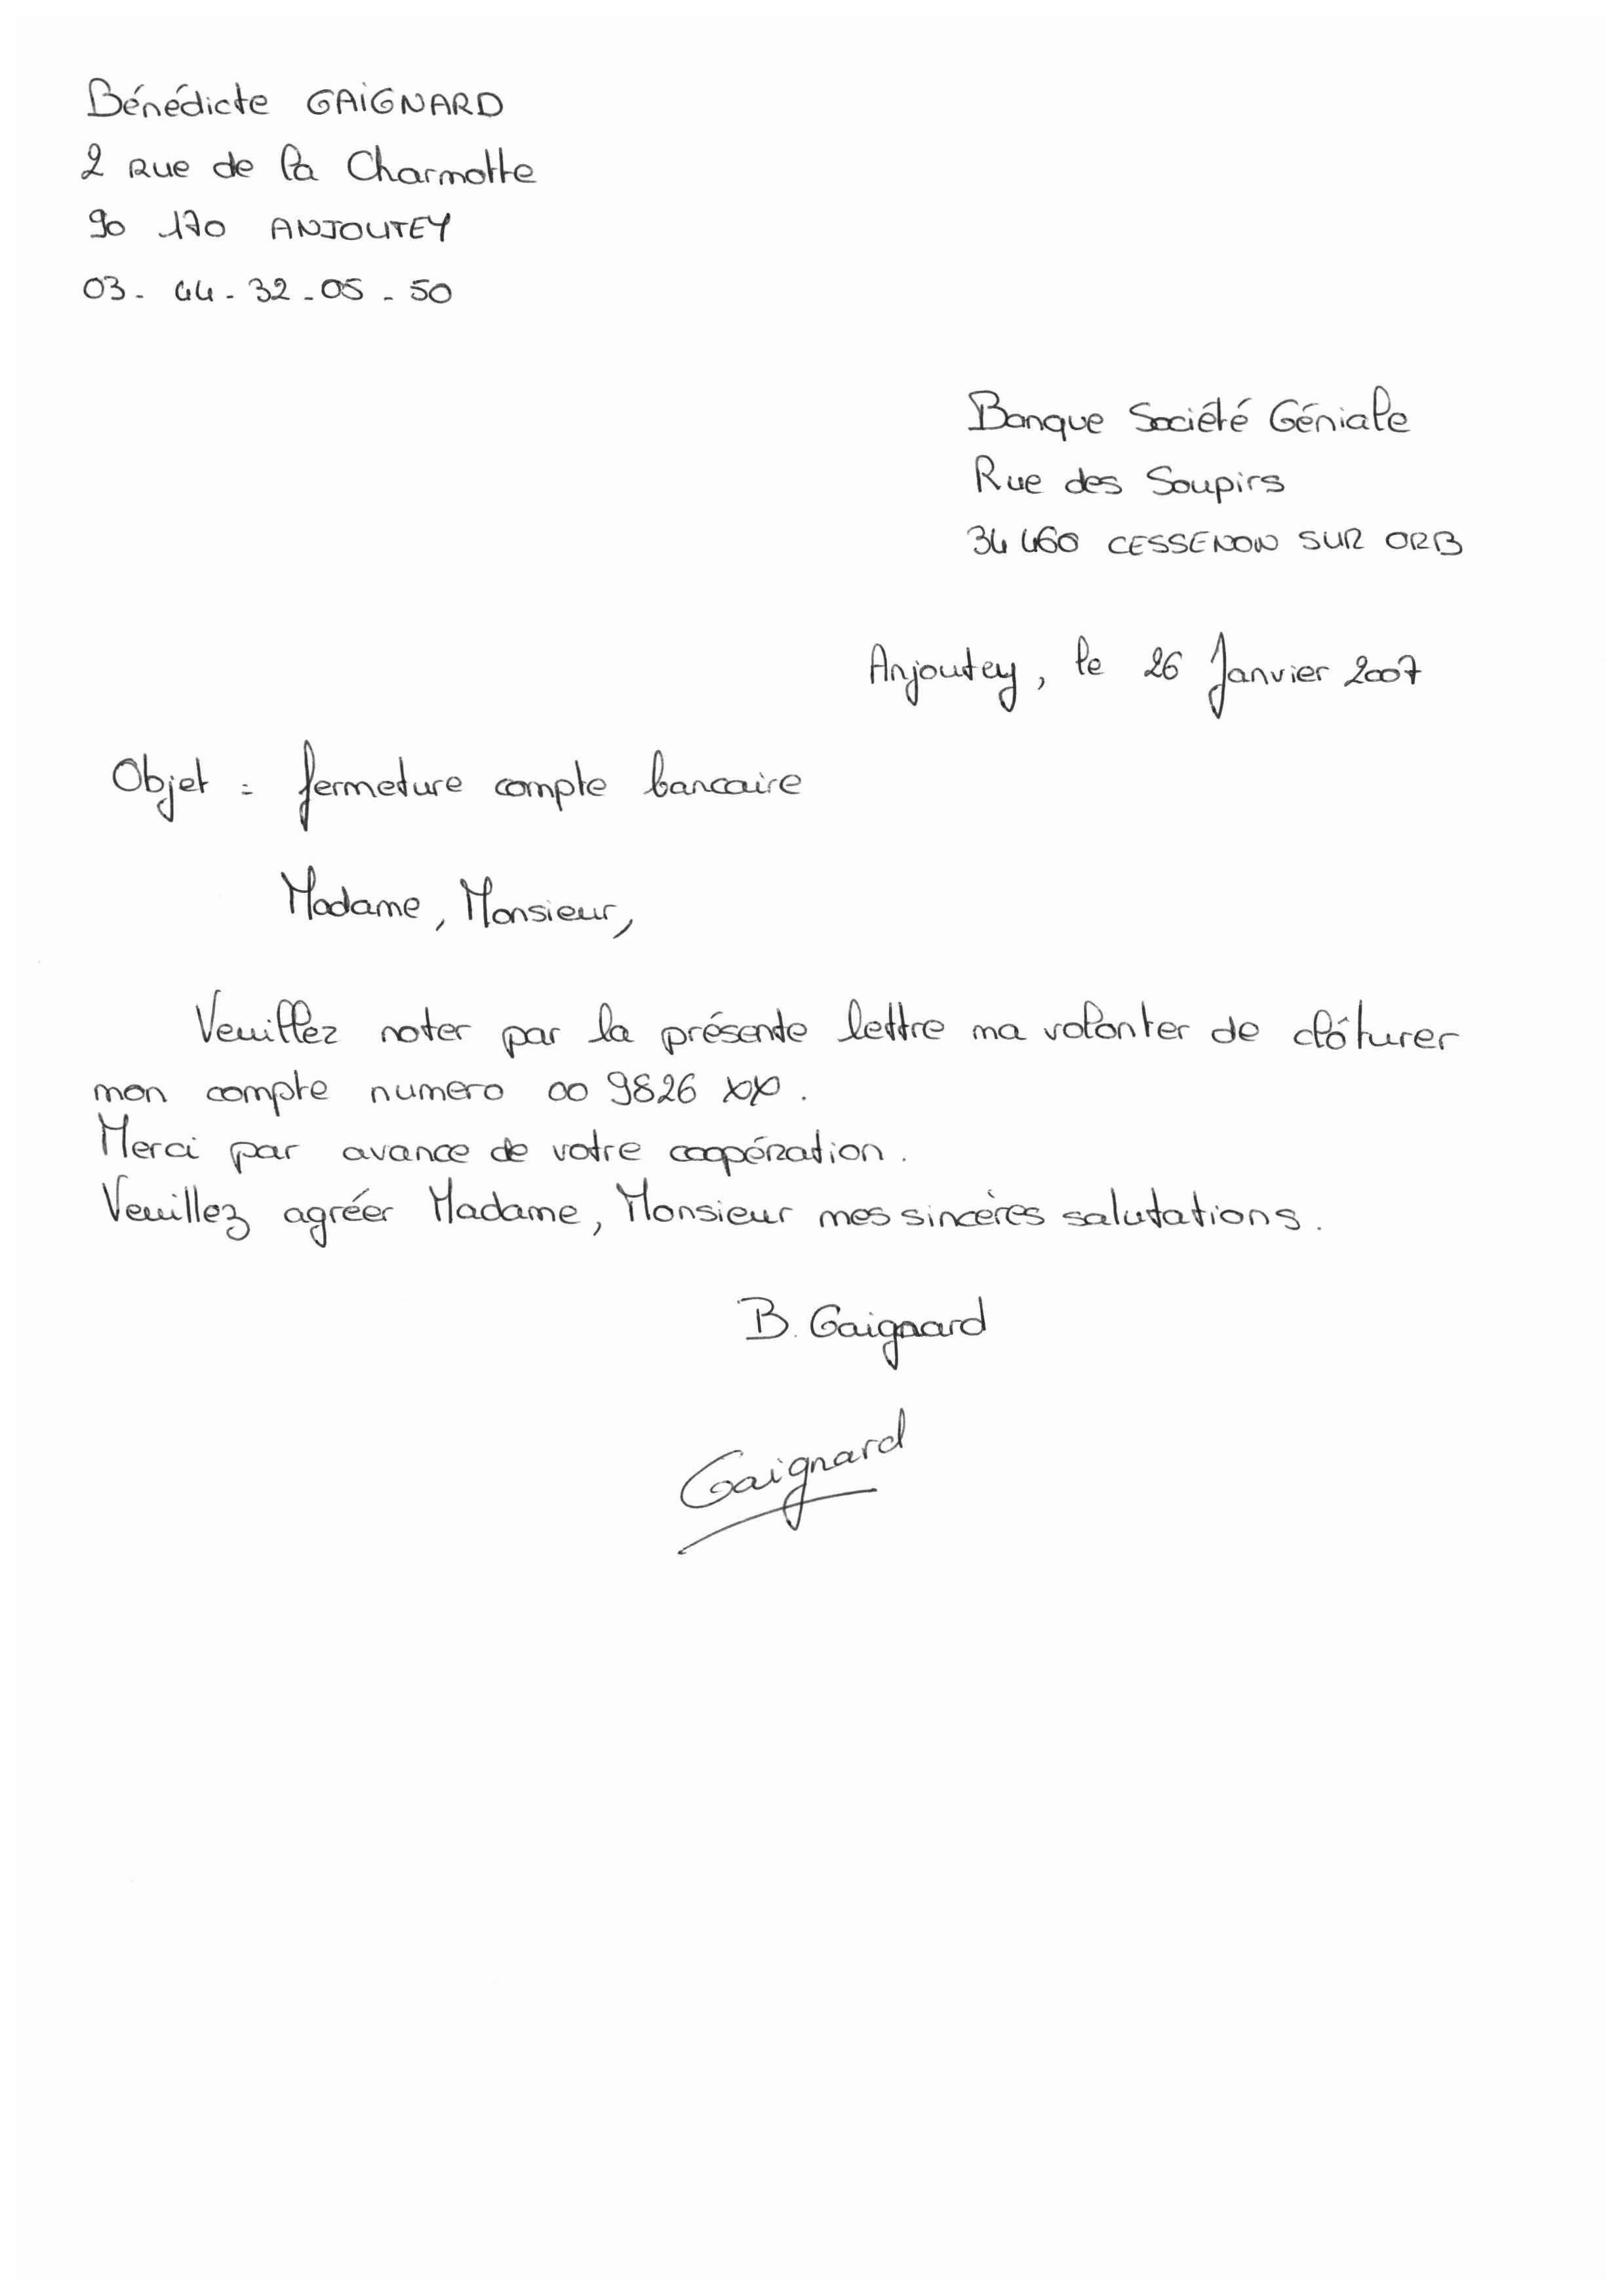 Bénédicte GAIGNARD
2 Rue de la Charmotte
90 170 ANJOUTEY
03 - 44 - 32 - 05 - 50
Banque Société Géniale
Rue des Soupirs
34 460 CESSENON SUR ORB
Anjoutey, le 26 Janvier 2007
Objet : fermeture compte bancaire
Madame, Monsieur,
Veuillez noter par la présente lettre ma volonter de clôturer
mon compte numero 00 9826 XX.
Merci par avance de votre coopération.
Veuillez agréer Madame, Monsieur mes sincères salutations.
B. Gaignard
Gaignard